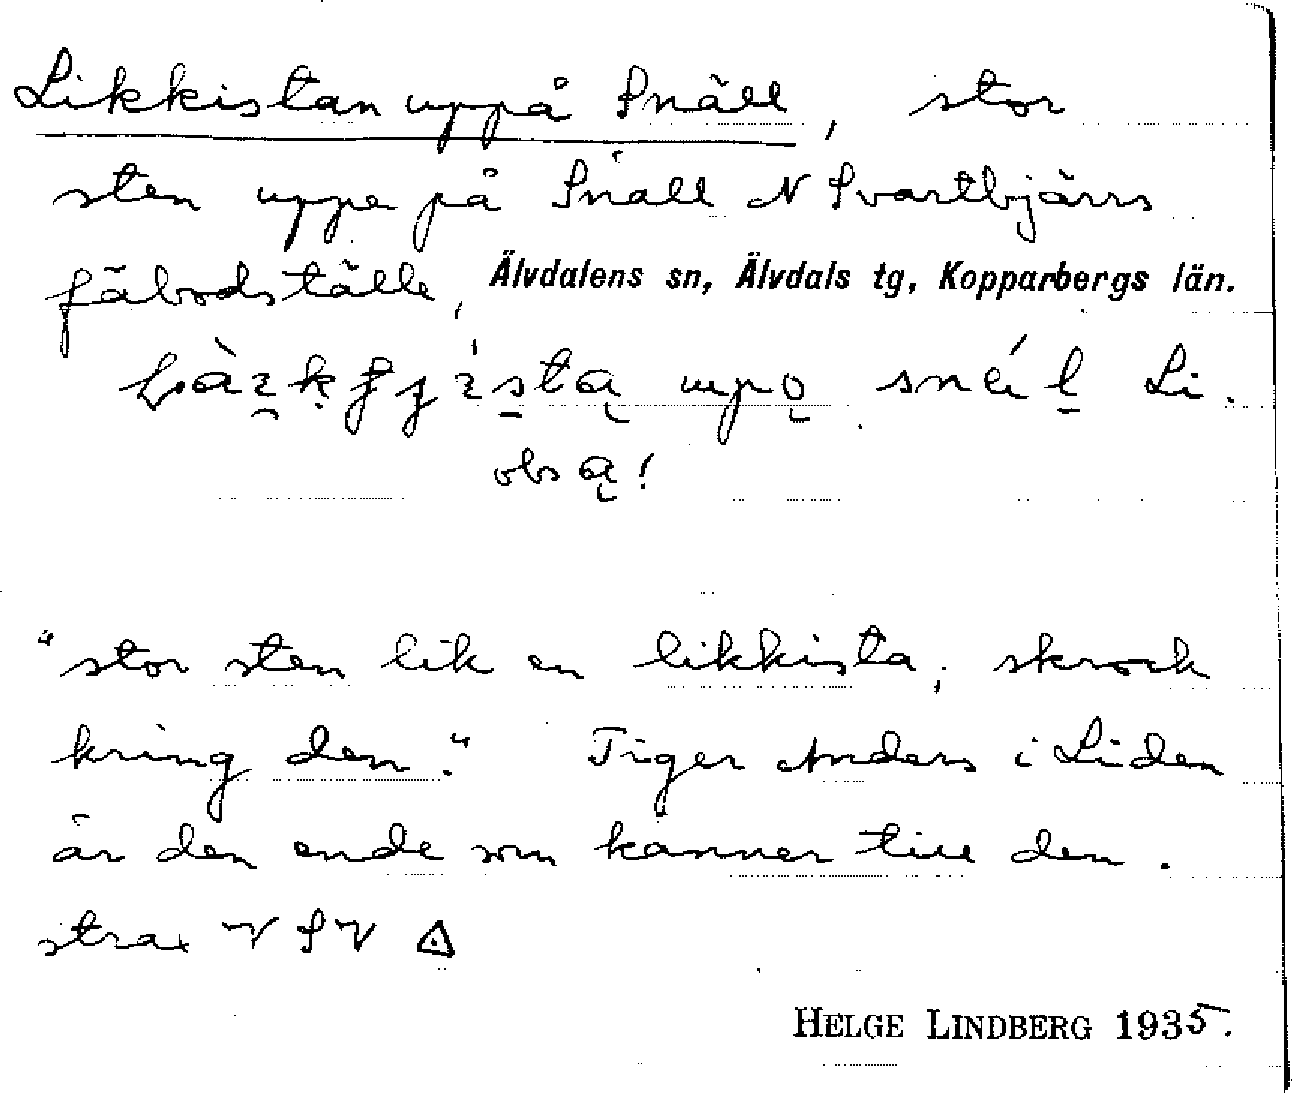 Likkistan uppå Snäll, stor
sten uppe på Snäll N Svartbjärrs
fäbodställe, Älvdalens sn, Älvdals tg, Kopparbergs län.
upǫ Li.
obs ą!
"stor sten lik en likkista, skrock
kring den." Tiger Anders i Liden
är den ende som känner till den.
strax V SV
HELGE LINDBERG 1935.